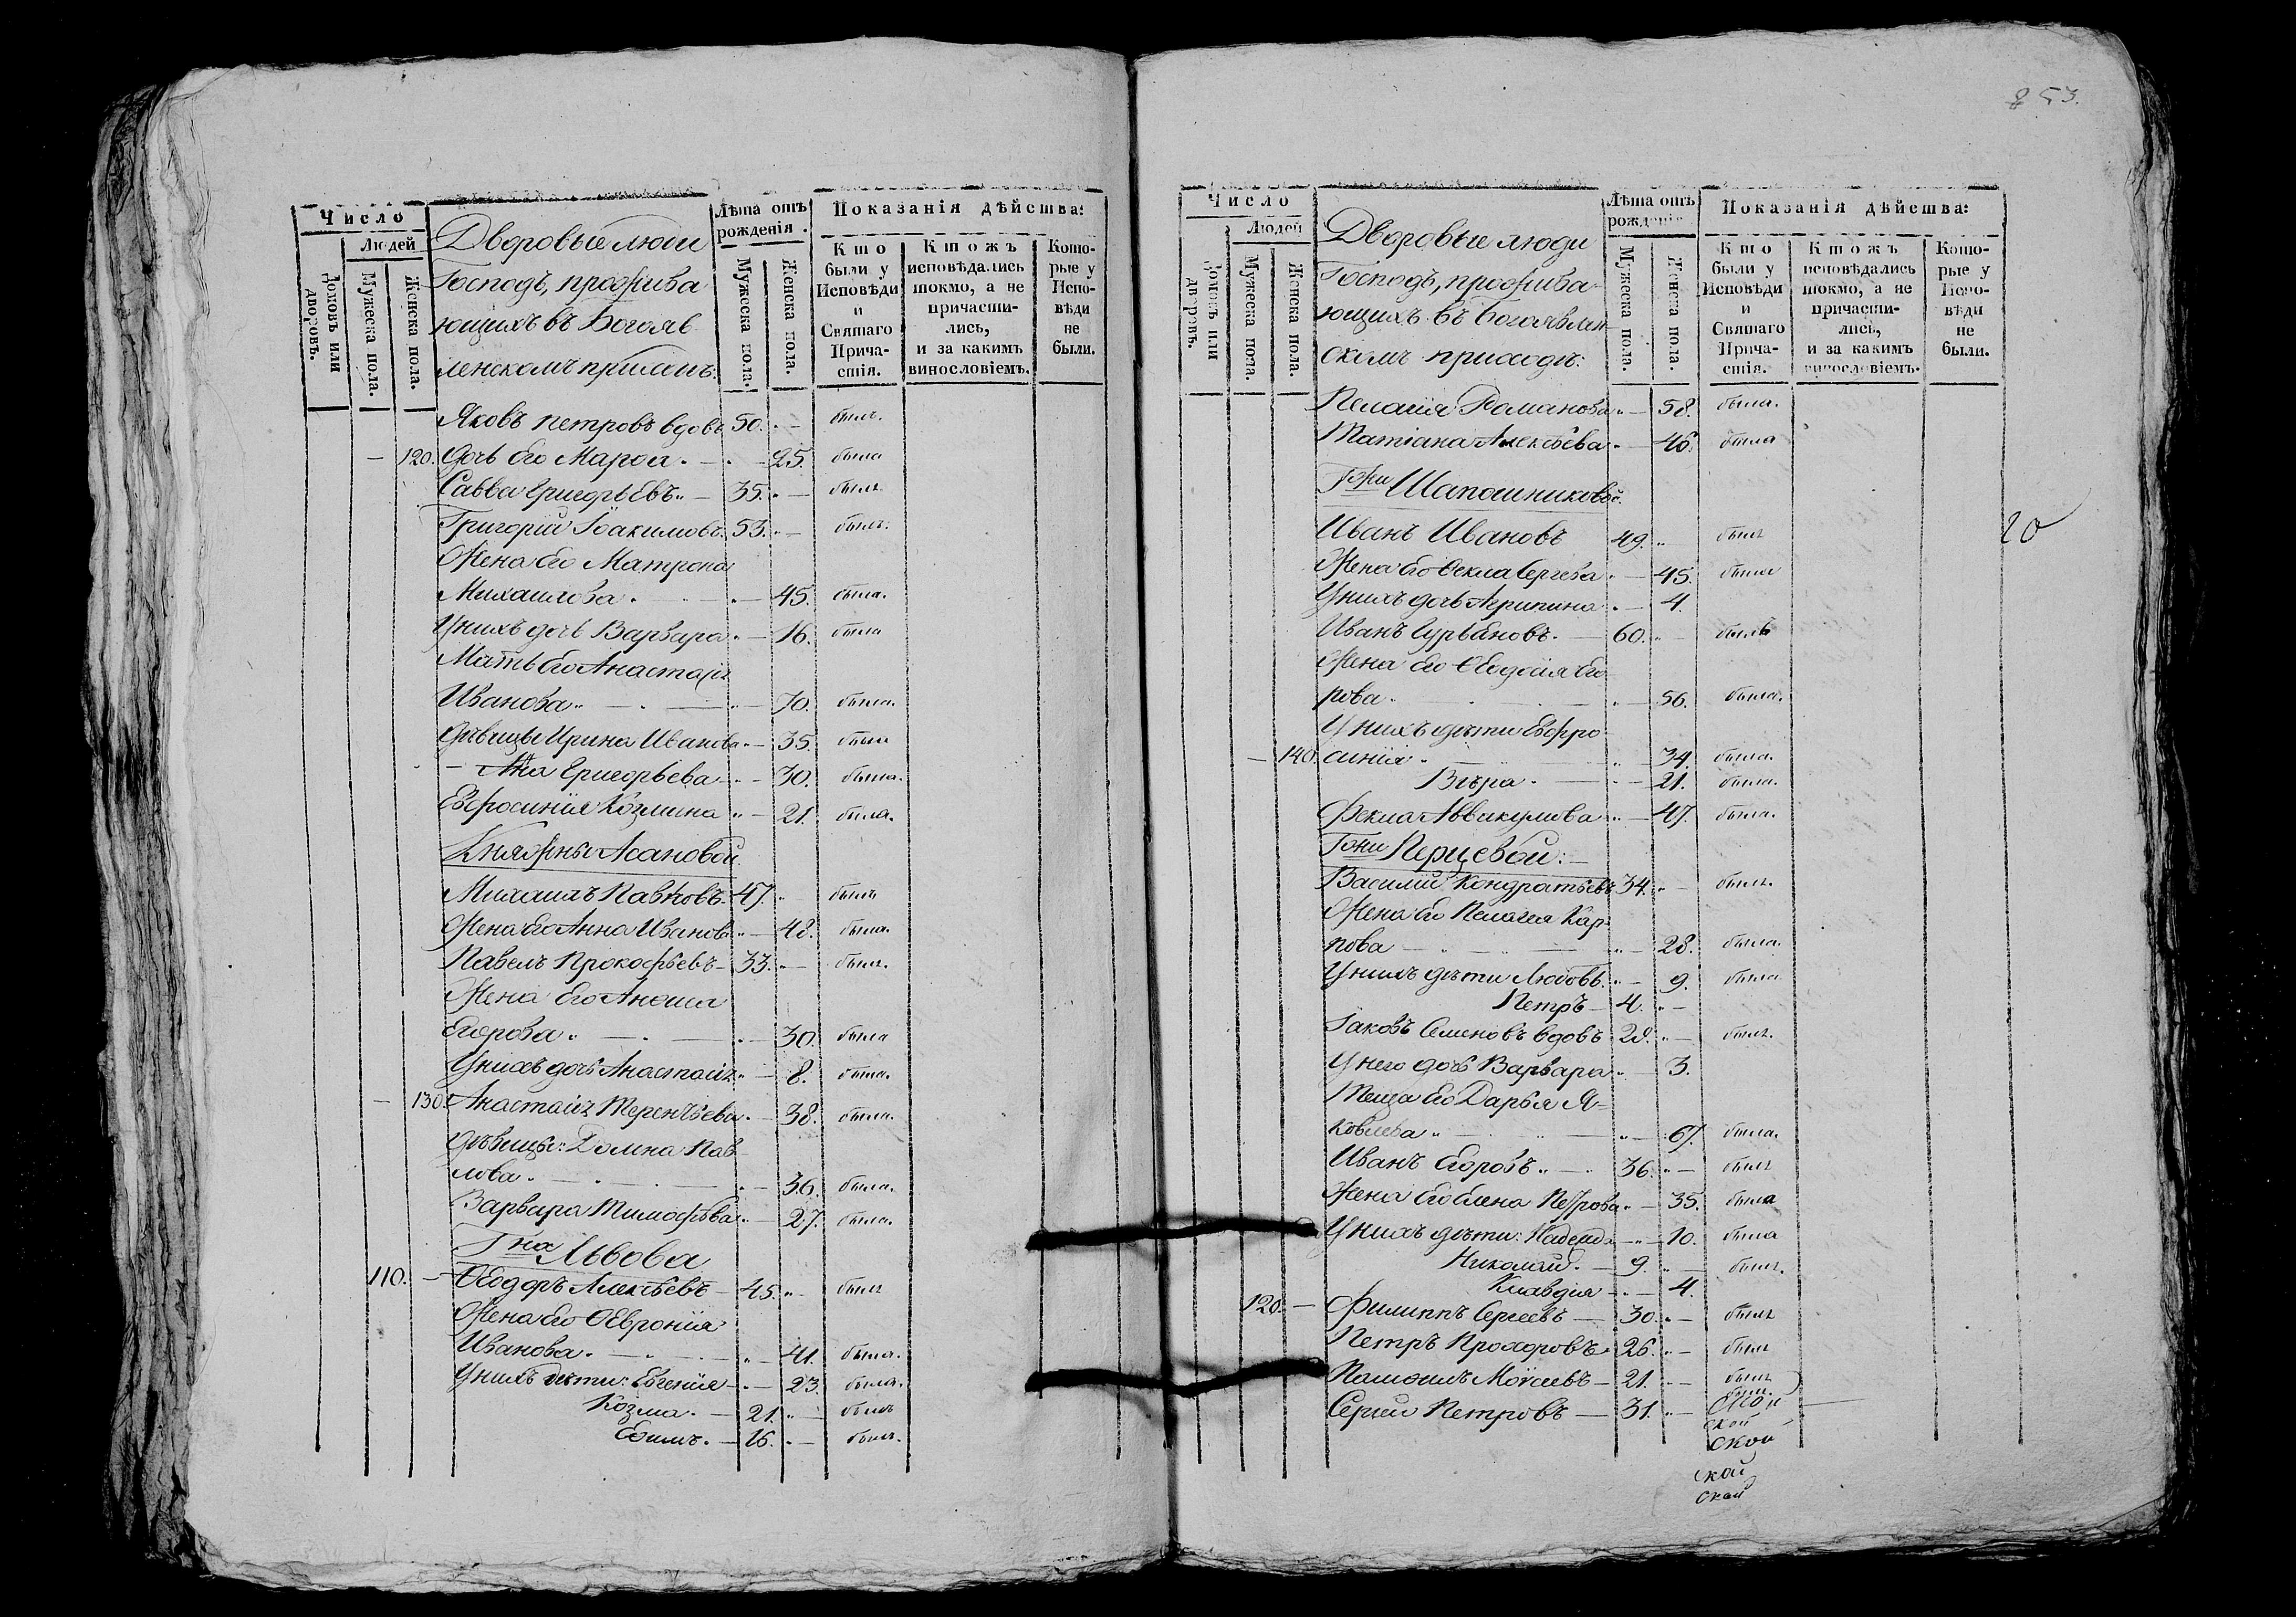 Число
Людей
Домовъ или дворовъ.
Мужеска пола.
Женска пола.
Дворовые люди
Господъ, прожива
ющихъ въ Богояв
ленскомъ приходѣ:
Лѣта отъ рожденія.
Мужеска пола.
Женска пола.
Показанія дѣйства:
Кто были у Исповѣди и Святаго Причастія.
Ктожъ исповѣдались токмо, а не причастились, и за какимъ винословіемъ.
Которые у Исповѣди не были.
Яковъ Петровъ вдовъ 50. „ — былъ.
— 120. Дочь его Марѳа. — „ — 25. была
Савва Григорьевъ „ — 35. „ — былъ
Григорій Іоакимовъ. 53. „ — былъ.
Жена его Матрона
Михаилова. „ — 45. была.
У нихъ дочь Варвара „ — 16. была
Мать его Анастасія
Иванова „ — „ — 70. была.
Дѣвицы Ирина Иванова „ — 35. была
— Анна Григорьева — „ — 30. была.
Евфросинія Козмина „ — 21. была.
Княжны Асановой
Михаилъ Павловъ. 47. „ былъ
Жена его Анна Иванова „ — 48. была.
Павелъ Прокофьевъ — 33. „ — былъ.
Жена его
Егорова „ — „ — 30. была
У нихъ дочь Анастасія „ — 8. была.
— 130. Анастасія Терентьева. — 38. была.
Дѣвицы: Домна Пав
лова. — „ — 36. была.
Варвара Тимофѣева „ — 27. была.
Г-на Львова
110. — Ѳеодоръ Алексѣевъ — 45. „ — былъ
Жена его Ѳевронія
Иванова. — „ — 41. была.
У нихъ дѣти: Евгенія — „ — 23. была.
Козма. — 21. „ — былъ
Ефимъ. — 16. „ — былъ.
853.
Число
Людей
Домовъ или дворовъ.
Мужеска пола.
Женска пола.
Дворовые люди
Господъ, прожива
ющихъ въ Богоявлен
скомъ приходѣ:
Лѣта отъ рожденія
Мужеска пола.
Женска пола.
Показанія дѣйства:
Кто были у Исповѣди и Святаго Причастія.
Ктожъ исповѣдались токмо, а не причастились, и за какимъ винословіемъ.
Которые у Исповѣди не были.
Пелагія Романова „ — 58. была.
Татіана Алексѣева „ — 46. была
Г-жи Шапошниковой.
20
Иванъ Ивановъ 49. „ былъ
Жена его Ѳекла Сергѣева „ — 45. была
У нихъ дочь Агрипина „ — 4.
Иванъ Гурьяновъ. — 60. „ — былъ
Жена его Ѳеодосія Его
рова. „ — 56. была.
У нихъ дѣти Евфро
— 140. синія. „ — 34. была.
Вѣра. — „ — 21. была.
Фекла Аввакумова „ — 47. была.
Г-жи Перцевой: —
Василій Кондратьевъ 34. „ — былъ.
Жена его Пелагея Кар
пова — „ — 28. была.
У нихъ дѣти Любовь. „ — 9. была
Петръ — 4. „ —
Іаковъ Семеновъ вдовъ 28. „ — былъ.
У него дочь Варвара „ — 3.
Теща его Дарья Я=
ковлева „ — „ — 67. была.
Иванъ Егоровъ „ — 36. „ — былъ
Жена его Елена Петрова „ — 35. была
У нихъ дѣти: Надежда — „ — 10. была
Николай. — 9. „ — былъ.
Клавдія — „ — 4.
120. — Филиппъ Сергѣевъ — 30. „ — былъ
Петръ Прохоровъ „ 26. „ — былъ
Моѵсеевъ — 21. „ — былъ
Сергій Петровъ — 31. „ — был.
ской
ской
ской
ской